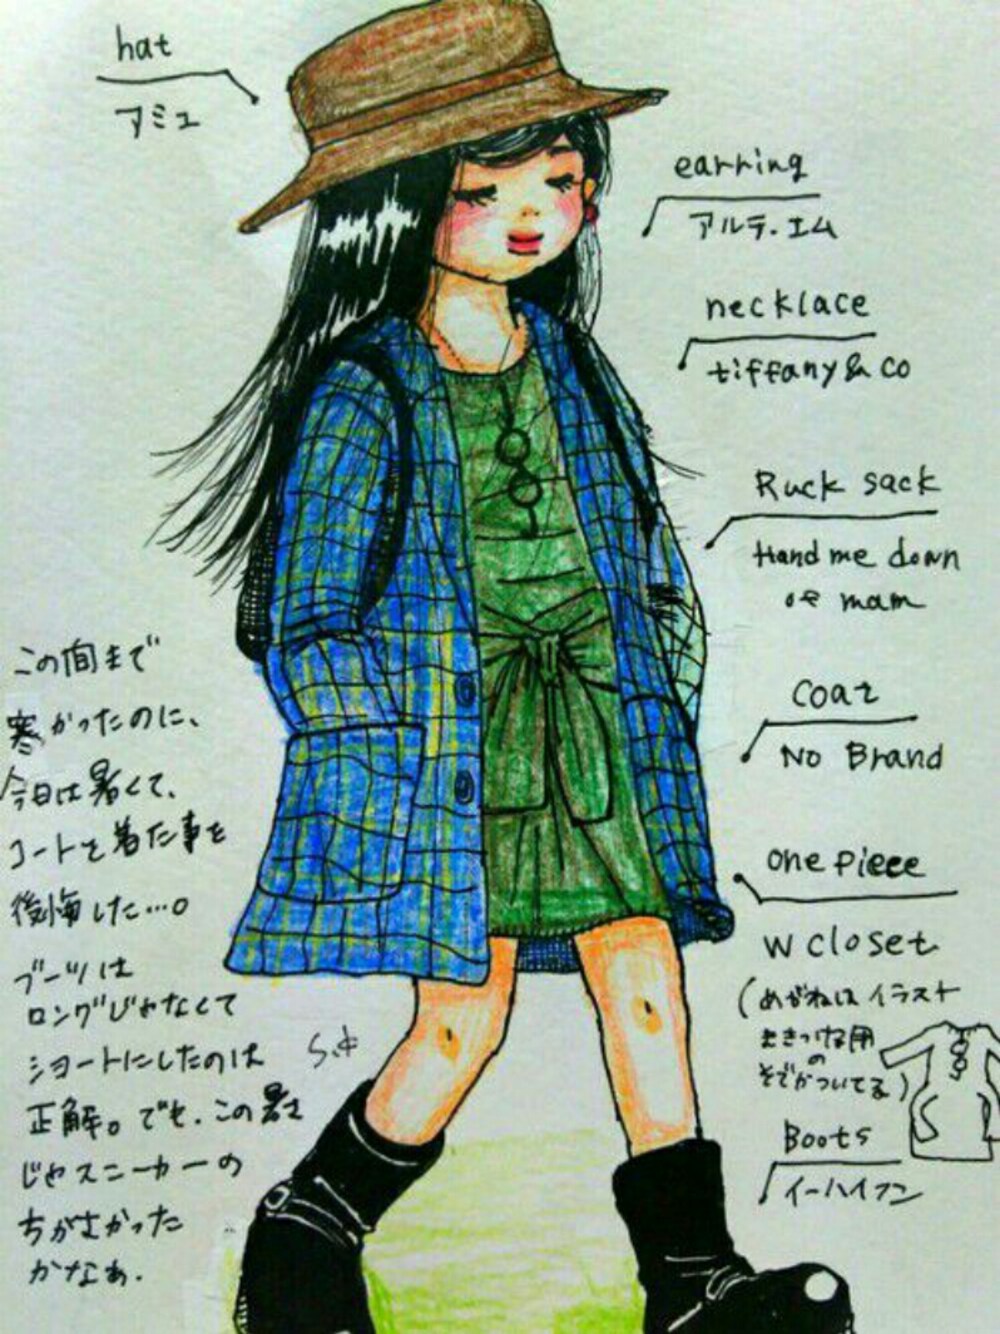 hat
アミュ
earring
アルテ.エム
necklace
tiffany & co
Ruck sack
Hand me down
of mam
coat
No Brand
one piece
w closet
(めがねは イラスト
の
そでがついてる)
Boots
イーハイフン
この間まで
寒かったのに、
今日は暑くて、
コートを着た事を
後悔した…。
ブーツは
ロングじゃなくて
ショートにしたのは
正解。でも、この暑さ
じゃスニーカーの
ちがよかった
かなぁ.